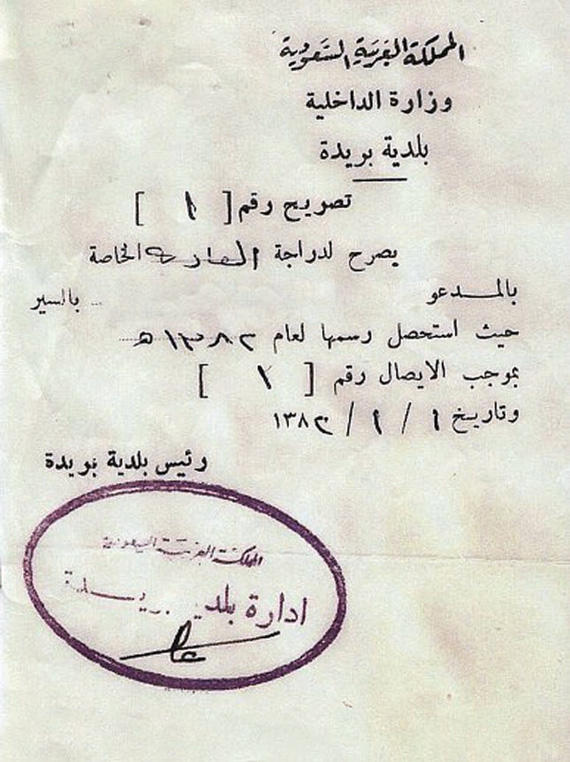 المملكة العربية السعودية
وزارة الداخلية
بلدية بريدة
تصريح رقم [ ١ ]
يصرح لدراجة الخاصة
بالمدعو ... بالسير
حيث استحصل رسمها لعام ١٣٨٢ هـ
بموجب الايصال رقم [ ١ ]
وتاريخ ١ / ١ / ١٣٨٢
رئيس بلدية بريدة
المملكة العربية السعودية
ادارة بلدية بريدة